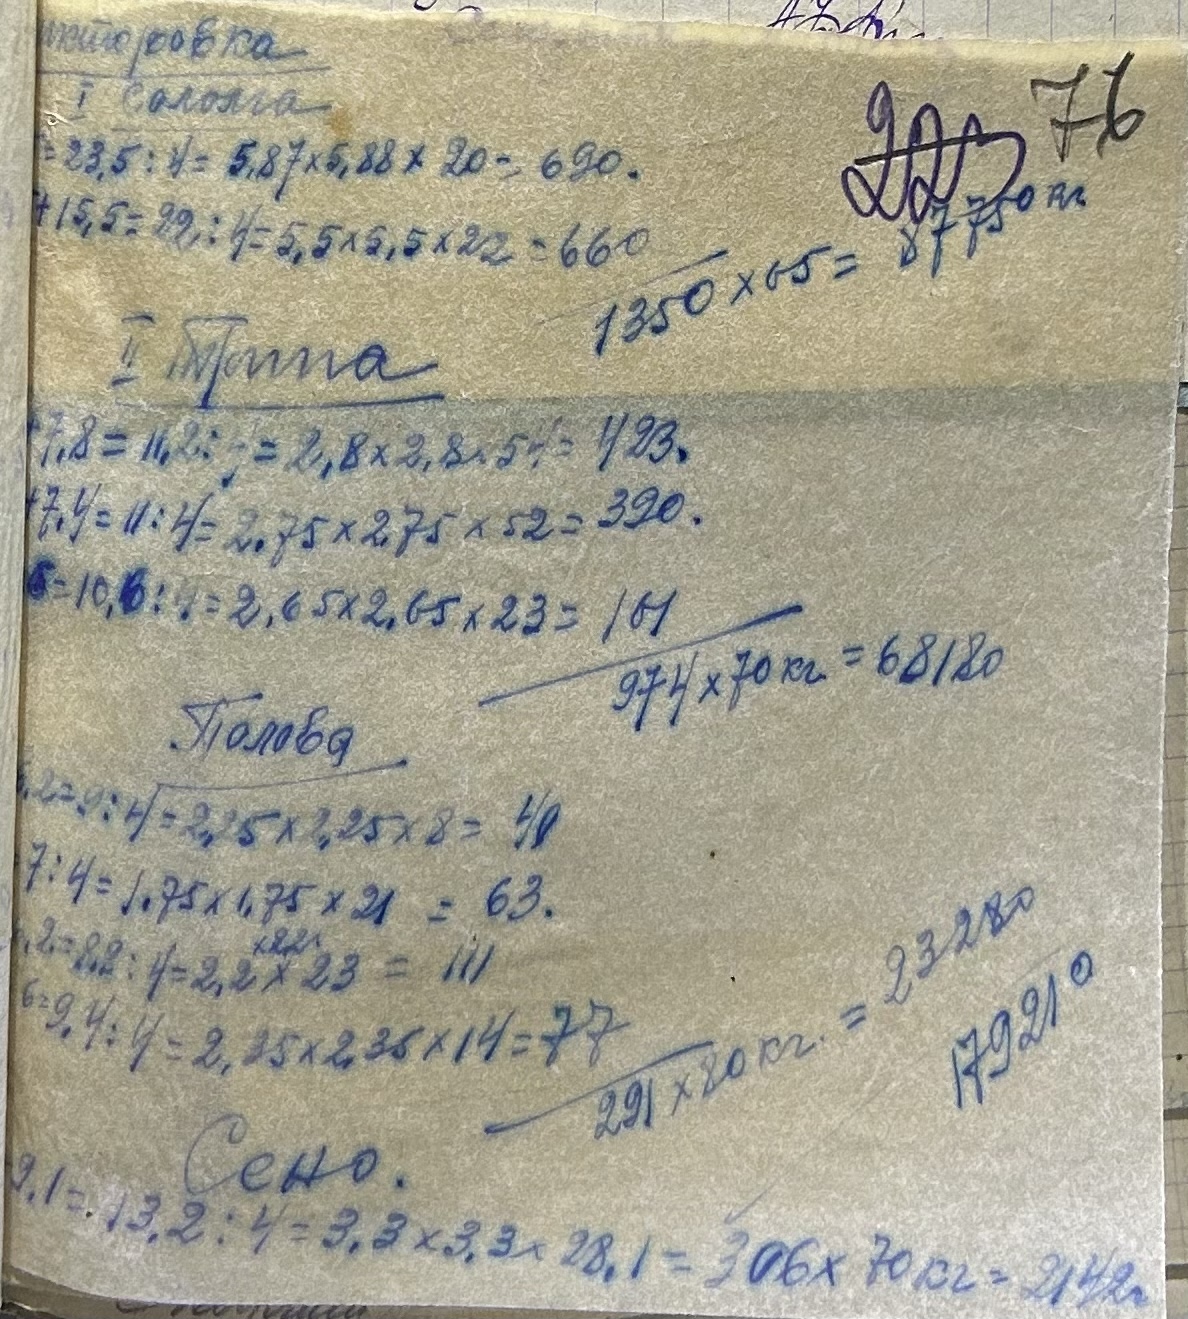 76
I Солома
=23,5:4= 5,87×5,88× 20= 690.
+15,5=22,:4=5,5×5,5×22=660
1350×65= 87750 кг
II Трипа
+7,8=11,2:4=2,8×2,8×54=423.
+7,4=11:4=2.75×2.75×52=390.
6=10,6:4=2,65×2,65×23=161
974×70кг.=68180
Полова
,2=9:4=2,25×2,25×8= 40
7:4=1.75×1.75×21 = 63.
,2=8,2:4=2,2×23 = 111
6=9,4:4=2,35×2,35×14=77
291×80кг.=23280
179210
Сено.
9,1=13,2:4=3,3×3,3×28,1=306×70кг=2142